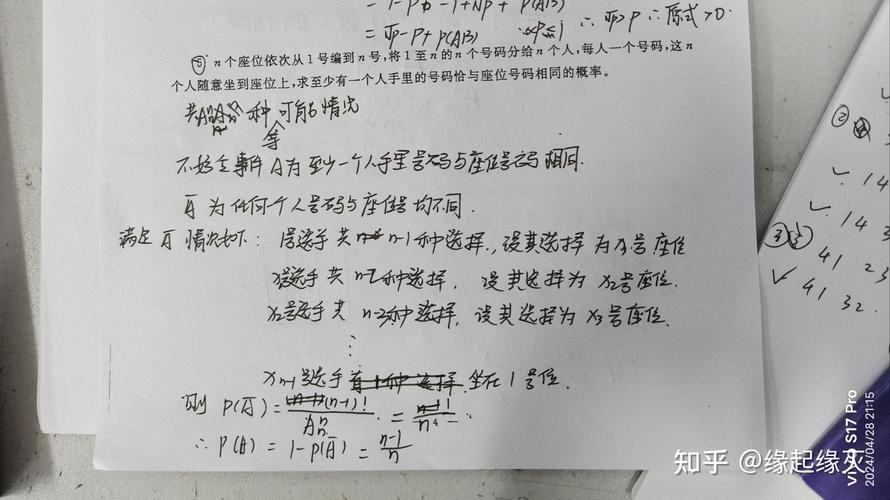 = 1-P
-1+NP+ P(AB)
= √P-P+P(AB) ∵P≤1 ∴√P≥P ∴原式>0.
⑤ n 个座位依次从 1 号编到 n 号,将 1 至 n 的 n 个号码分给 n 个人,每人一个号码,这 n
个人随意坐到座位上,求至少有一个人手里的号码恰与座位号码相同的概率。
共 种 等 可能情况
不妨令事件 A 为 至少一个人手里号码与座位号码 相同.
Ā 为任何一个人号码与座位号均不同.
满足 Ā 情况如下: 1号选手共 n-1 种选择., 设其选择 为 x₁号 座位
x₁号选手 共 n-2种选择, 设其选择为 x₂号座位.
x₂号选手 共 n-3种选择, 设其选择为 x₃号座位.
⋮
xₙ₋₁号选手 坐在 1 号位.
则 P(Ā) = (n-1)! / Aₙⁿ =
∴ P(A) = 1-P(Ā) = n-1 / n
②
✓ 14
✓ 14 3
③
41 23
✓ 41 32.
VIVO S17 Pro
2024/04/28 21:15
知乎 @缘起缘灭